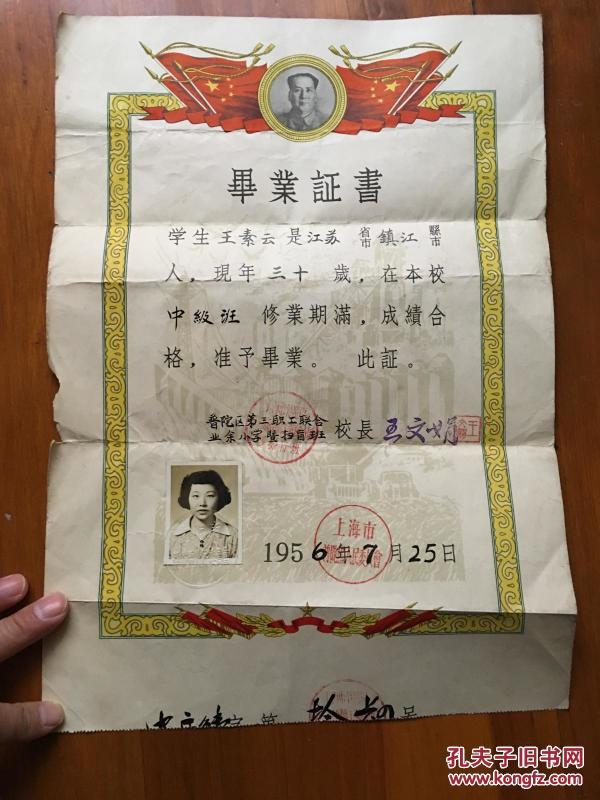 畢業証書
学生王素云是江苏省市鎮江縣市
人，現年三十歲，在本校
中級班修業期滿，成績合
格，准予畢業。此証。
普陀区第三职工联合
业余小学暨扫盲班
校長王文娟
上海市
1956年7月25日
字第拾
号
孔夫子旧书网
www.kongfz.com